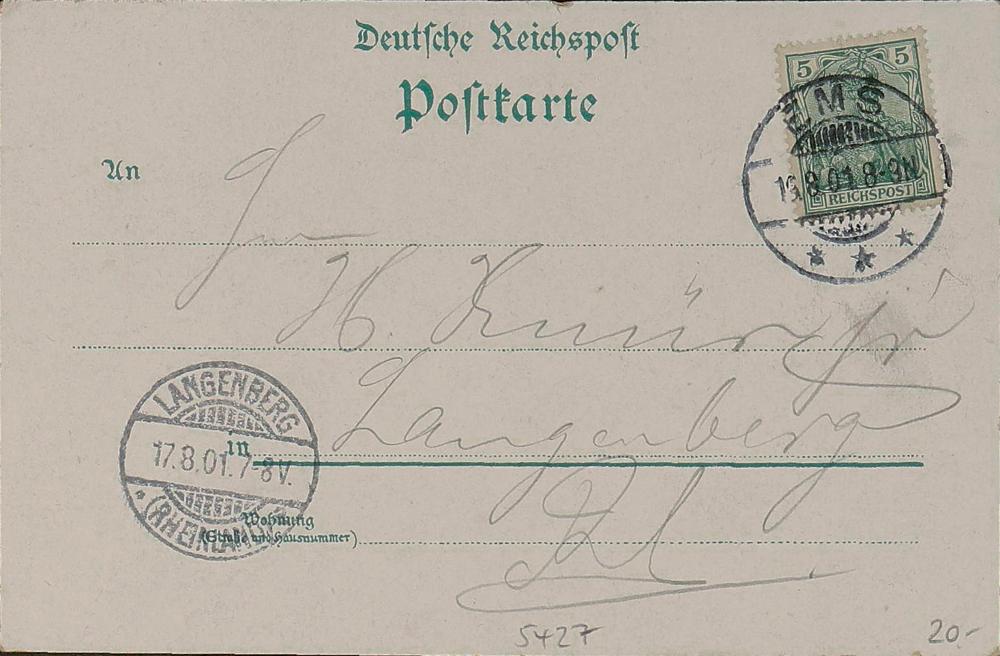 Deutsche Reichspost
Postkarte
5 5
REICHSPOST
EMS
16.8.01.8-9N
An
H.
Langenberg
LANGENBERG
17.8.01.7-8V.
(RHEINLAND)
in
Rhl
Wohnung
(Straße und Hausnummer)
5427
20.-